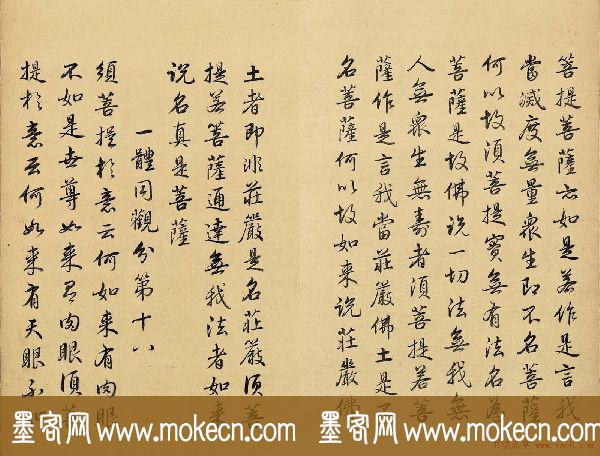 菩提菩薩亦如是若作是言我
當滅度無量衆生即不名菩薩
何以故須菩提實無有法名為
菩薩是故佛説一切法無我無
人無衆生無壽者須菩提若菩
薩作是言我當莊嚴佛土是不
名菩薩何以故如来説莊嚴佛
土者即非莊嚴是名莊嚴須菩
提若菩薩通達無我法者如来
説名真是菩薩
一體同觀分第十八
須菩提於意云何如来有肉眼
不如是世尊如来有肉眼須菩
提於意云何如来有天眼不
墨客网www.mokecn.com 墨客网www.mokecn.com